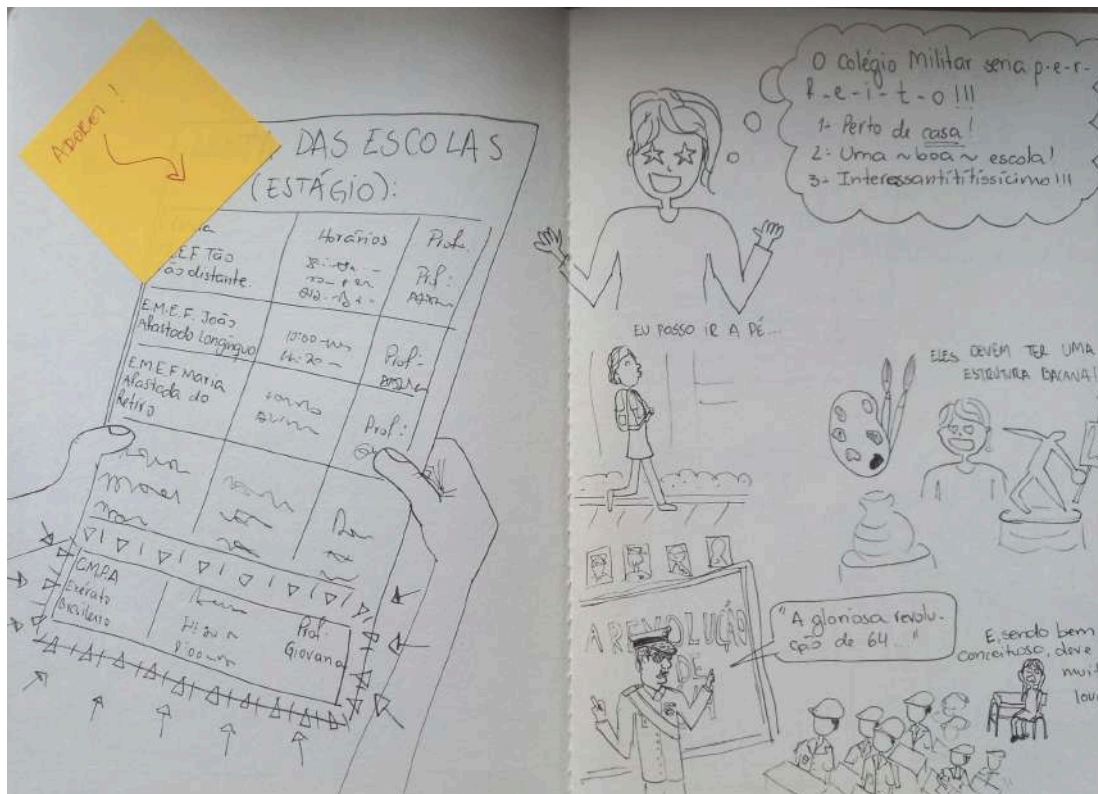 ADOREI!
DAS ESCOLAS
(ESTÁGIO):
Horários
Prof.
E.F. Tão
ão distante.
Prof:
E.M.E.F. João
Afastado Longínquo
10:00
11:20
Prof:
E.M.E.F Maria
Afastada do
Retiro
Prof:
CMPA
Exército
Brasileiro
Prof:
Giovana
O colégio Militar seria p-e-r-
f-e-i-t-o!!!
1- Perto de casa!
2- Uma ~boa~ escola!
3- Interessantítítíssícimo!!!
EU POSSO IR A PÉ...
ELES DEVEM TER UMA
ESTRUTURA BACANA!
A REVOLUÇÃO
DE
"A gloriosa revolu-
ção de 64..."
E, sendo bem
conceituoso, deve
muit
lou